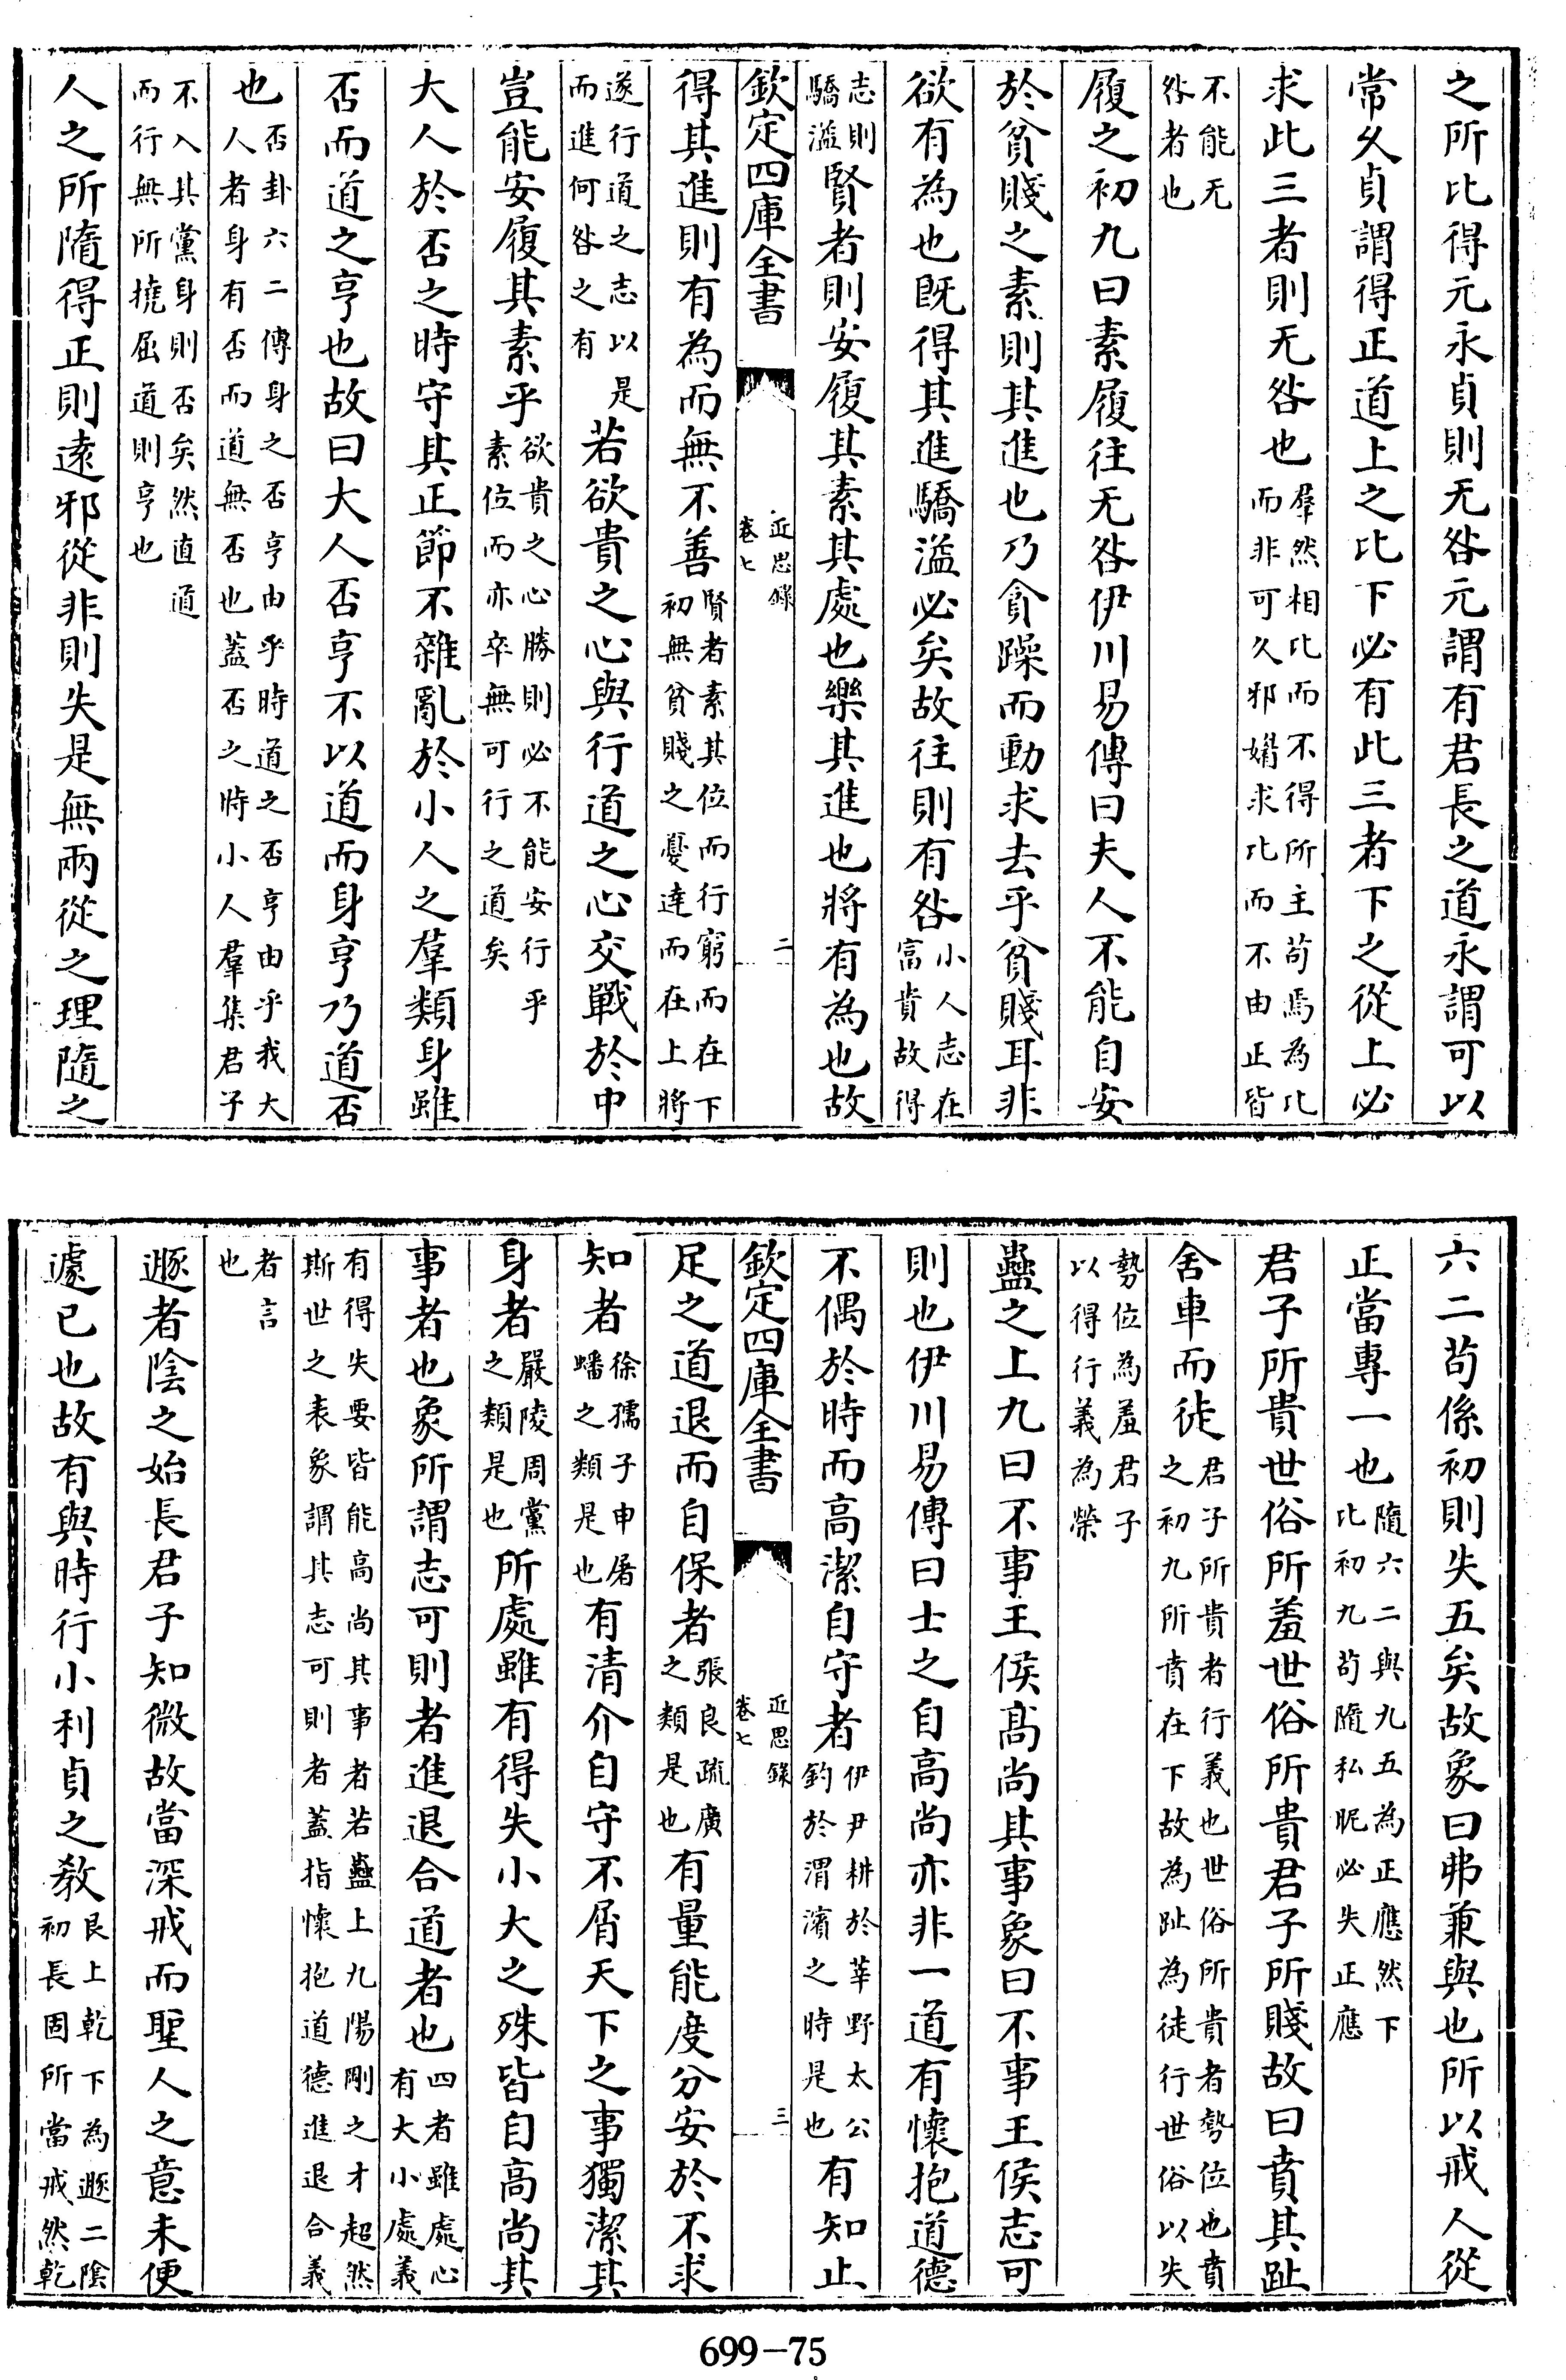 之所比得元永貞則无咎元謂有君長之道永謂可以
常久貞謂得正道上之比下必有此三者下之從上必
求此三者則无咎也羣然相比而不得所主苟焉為比而非可久邪媚求比而不由正皆
不能无咎者也
履之初九曰素履往无咎伊川易傳曰夫人不能自安
於貧賤之素則其進也乃貪躁而動求去乎貧賤耳非
欲有為也既得其進驕溢必矣故往則有咎小人志在富貴故得
志則驕溢賢者則安履其素其處也樂其進也將有為也故
欽定四庫全書 近思錄卷七 二
得其進則有為而無不善賢者素其位而行窮而在下初無貧賤之憂達而在上將
遂行道之志以是而進何咎之有若欲貴之心與行道之心交戰於中
豈能安履其素乎欲貴之心勝則必不能安行乎素位而亦卒無可行之道矣
大人於否之時守其正節不雜亂於小人之羣類身雖
否而道之亨也故曰大人否亨不以道而身亨乃道否
也否卦六二傳身之否亨由乎時道之否亨由乎我大人者身有否而道無否也蓋否之時小人羣集君子
不入其黨身則否矣然直道而行無所撓屈道則亨也
人之所隨得正則遠邪從非則失是無兩從之理隨之
六二苟係初則失五矣故象曰弗兼與也所以戒人從
正當專一也隨六二與九五為正應然下比初九苟隨私昵必失正應
君子所貴世俗所羞世俗所貴君子所賤故曰賁其趾
舍車而徒君子所貴者行義也世俗所貴者勢位也賁之初九所賁在下故為趾為徒行世俗以失
勢位為羞君子以得行義為榮
蠱之上九曰不事王侯高尚其事象曰不事王侯志可
則也伊川易傳曰士之自高尚亦非一道有懷抱道德
不偶於時而高潔自守者伊尹耕於莘野太公釣於渭濱之時是也有知止
欽定四庫全書 近思錄卷七 三
足之道退而自保者張良疏廣之類是也有量能度分安於不求
知者徐孺子申屠蟠之類是也有清介自守不屑天下之事獨潔其
身者嚴陵周黨之類是也所處雖有得失小大之殊皆自高尚其
事者也象所謂志可則者進退合道者也四者雖處心有大小處義
有得失要皆能高尚其事者若蠱上九陽剛之才超然斯世之表象謂其志可則者蓋指懷抱道德進退合義
者言也
遯者陰之始長君子知微故當深戒而聖人之意未便
遽已也故有與時行小利貞之教艮上乾下為遯二陰初長固所當戒然乾
699-75